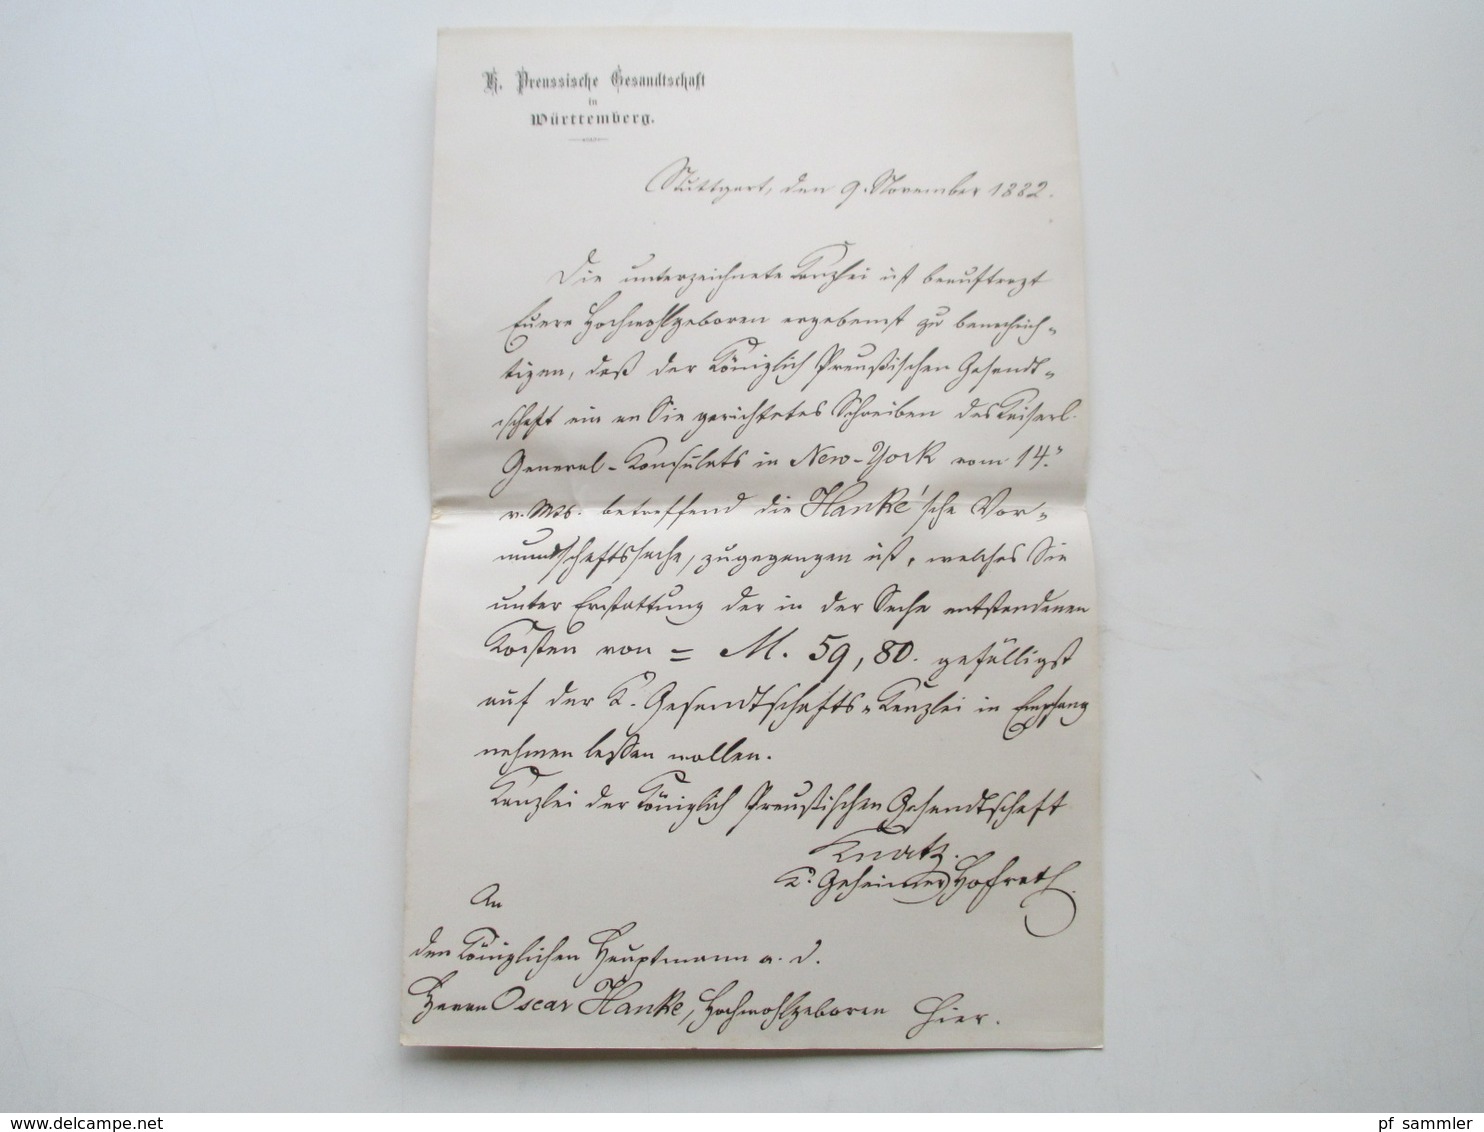 K. Preussische Gesandtschaft
in
Württemberg.
Stuttgart, den 9. November 1882.
Die unterzeichnete Kanzlei ist beauftragt
Euere Hochwohlgeboren ergebenst zu benachrich-
tigen, daß der Königlich Preußischen Gesandt-
schaft ein an Sie gerichtetes Schreiben des Kaiserl.
General-Konsulats in New-York vom 14.
v. Mts. betreffend die Hanke'sche Vor-
mundschaftssache, zugegangen ist, welches Sie
unter Erstattung der in der Sache entstandenen
Kosten von = M. 59,80. gefälligst
auf der K. Gesandtschafts-Kanzlei in Empfang
nehmen lassen wollen.
Kanzlei der Königlich Preußischen Gesandtschaft
K. Geheimer Hofrath.
An
den Königlichen Hauptmann a. D.
Herrn Oscar Hanke, Hochwohlgeboren Hier.
www.delcampe.net
pf sammler